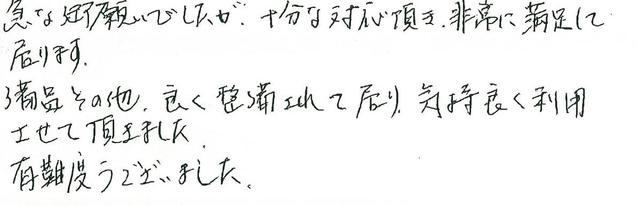 急なお願いでしたが、十分な対応頂き、非常に満足して
居ります。
備品その他、良く整備されて居り、気持良く利用
させて頂きました。
有難度うございました。